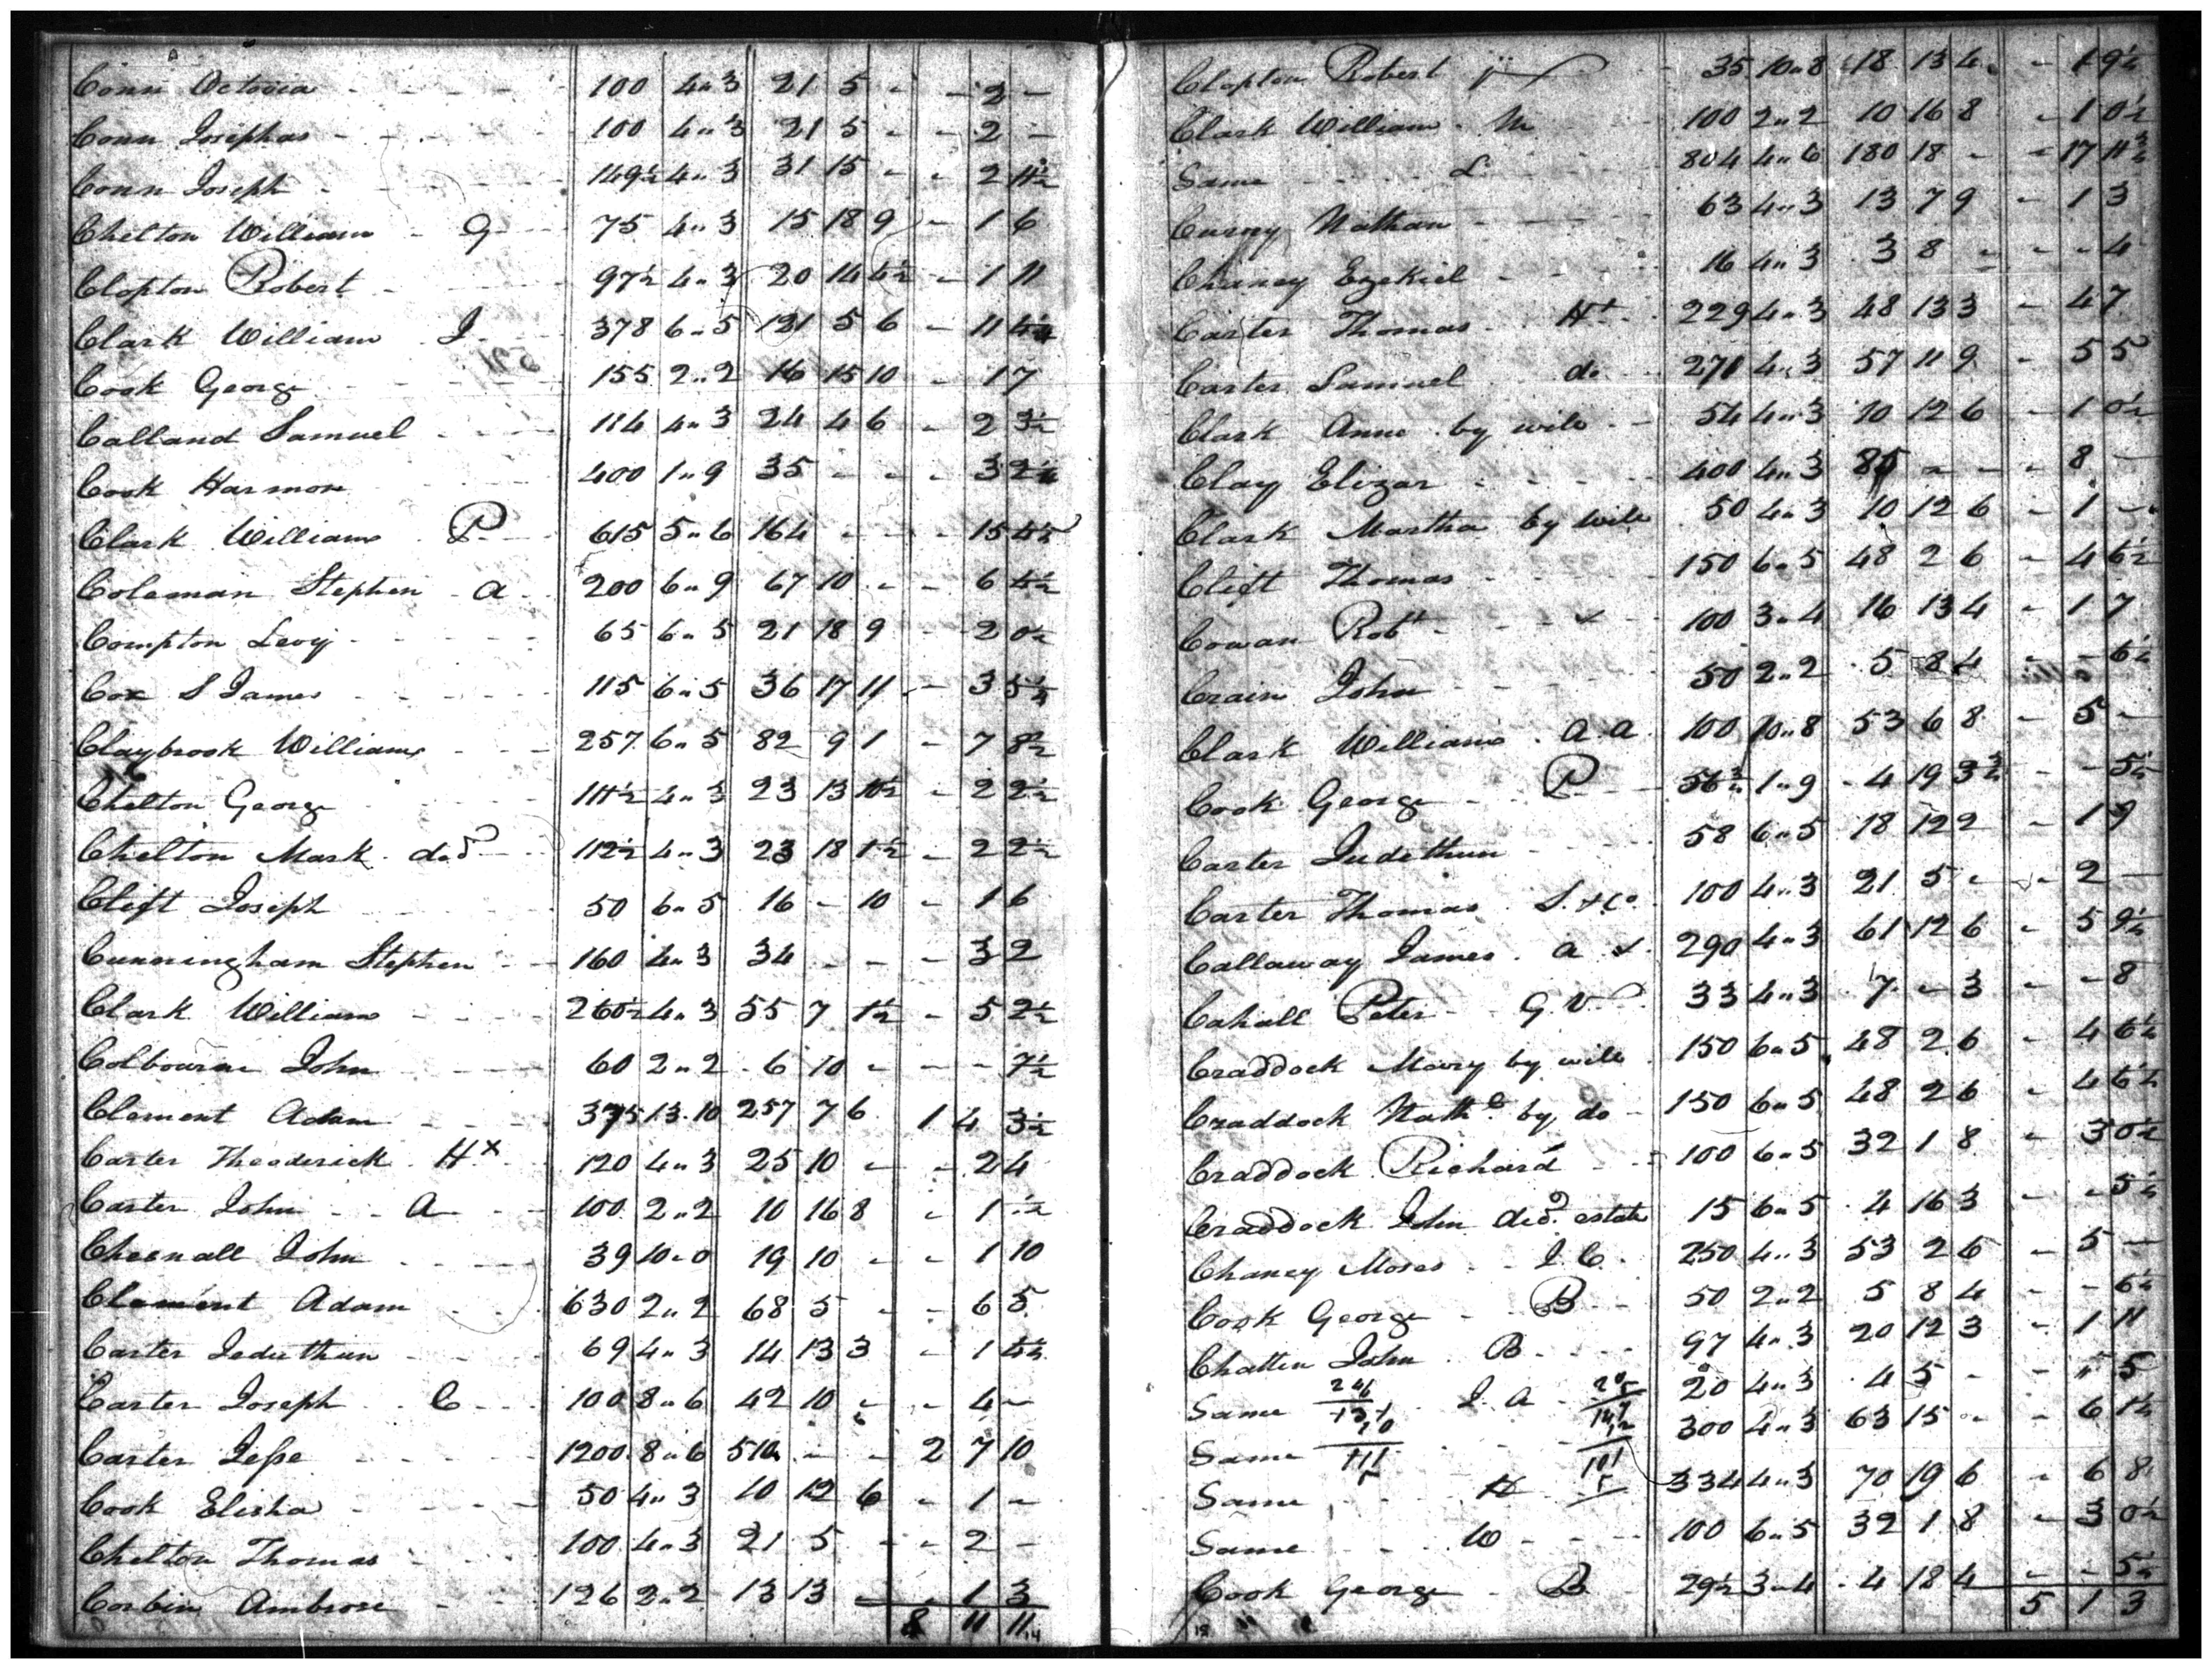 Conn Octovia 100 4"3 21 5 - - 2 -
Conn Josephas 100 4"3 21 5 - - 2 -
Conn Joseph 149½ 4"3 31 15 - - 2 11½
Chelton William G 75 4"3 15 18 9 - 1 6
Clopton Robert 97½ 4"3 20 14 4½ - 1 11
Clark William J 378 6"5 121 5 6 - 11
Cook George 155 2"2 16 15 10 - 1 7
Calland Samuel 114 4"3 24 4 6 - 2 3½
Cook Harmon 400 1"9 35 - - - 3
Clark William P 615 5"6 164 - - - 15
Coleman Stephen A 200 6"9 67 10 - - 6 4½
Compton Levy 65 6"5 21 18 9 - 2 0½
Cox S James 115 6"5 36 17 11 - 3
Claybrook William 257 6"5 82 9 1 - 7 8½
Chelton George 111½ 4"3 23 13 10½ - 2 2½
Chelton Mark decd 112½ 4"3 23 18 1½ - 2 2½
Clift Joseph 50 6"5 16 - 10 - 1 6
Cunningham Stephen 160 4"3 34 - - - 3 2
Clark William 260½ 4"3 55 7 1½ - 5 2½
Colbourne John 60 2"2 6 10 - - - 7½
Clement Adam 375 13"10 257 7 6 1 4 3½
Carter Theoderick H x 120 4"3 25 10 - - 2 4
Carter John A 100 2"2 10 16 8 - 1 ½
Cheenall John 39 10"0 19 10 - - 1 10
Clement Adam 630 2"2 68 5 - - 6 5
Carter Jeduthun 69 4"3 14 13 3 - 1 4½
Carter Joseph C 100 8"6 42 10 - - 4 -
Carter Jesse 1200 8"6 510 - - 2 7 10
Cook Elisha 50 4"3 10 12 6 - 1 -
Chelton Thomas 100 4"3 21 5 - - 2 -
Corbin Ambrose 126 2"2 13 13 - - 1 3
8 11 11
Clopton Robert jr 35 10"8 18 13 4 - 1 9¼
Clark William M 100 2"2 10 16 8 - 1 0½
Same L 804 4"6 180 18 - - 17 11¾
Curny Nathan 63 4"3 13 7 9 - 1 3
Chaney Ezekiel 16 4"3 3 8 - - - 4
Carter Thomas H+ 229 4"3 48 13 3 - 4 7
Carter Samuel do 271 4"3 57 11 9 - 5 5
Clark Anne by will 54 4"3 10 12 6 - 1 0½
Clay Elizar 400 4"3 85 - - - 8 -
Clark Martha by will 50 4"3 10 12 6 - 1 -
Clift Thomas 150 6"5 48 2 6 - 4 6½
Cowan Robt 100 3"4 16 13 4 - 1 7
Crain John 50 2"2 5 8 4 - - 6¼
Clark William A.A. 100 10"8 53 6 8 - 5 -
Cook George P 56¾ 1"9 4 19 3¾ - - 5¼
Carter Judethun 58 6"5 18 12 2 - 1 9
Carter Thomas S. & Co. 100 4"3 21 5 - - 2 -
Callaway James A 290 4"3 61 12 6 - 5 9¼
Cahall Peter G V 33 4"3 7 - 3 - - 8
Craddock Mary by will 150 6"5 48 2 6 - 4 6¼
Craddock Nathl by do 150 6"5 48 2 6 - 4 6¼
Craddock Richard 100 6"5 32 1 8 - 3 0½
Craddock John decd estate 15 6"5 4 16 3 - - 5½
Chaney Moses J.C. 250 4"3 53 2 6 - 5 -
Cook George B 50 2"2 5 8 4 - - 6¼
Chattin John B 97 4"3 20 12 3 - 1 11
Same J. A 20 4"3 4 5 - - " 5
Same 300 4"3 63 15 - - 6 1¼
Same H 334 4"3 70 19 6 - 6 8
Same W 100 6"5 32 1 8 - 3 0½
Cook George B 29½ 3"4 4 18 4 - - 5½
5 1 3